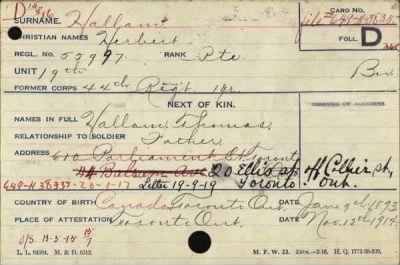 D
SURNAME. Hallam CARD NO.
file 649-H-3835
CHRISTIAN NAMES Herbert FOLL. D
REGL. NO. 55997. RANK Pte
UNIT 19th
FORMER CORPS 44th Regt
NEXT OF KIN. CHANGE OF ADDRESS
NAMES IN FULL Hallam, Thomas,
RELATIONSHIP TO SOLDIER Father
ADDRESS 610 Parliament St. Toronto
44 Balsam Ave 20 Ellis St. 44 Collier St.,
649-H-3835-20-1-17 Letter 19-9-19 Toronto Ont.
COUNTRY OF BIRTH Canada Toronto Ont. DATE Jan. 9th 1893
PLACE OF ATTESTATION Toronto Ont. DATE Nov. 12th 1914.
O/S. 13-5-15
L. L. 94304. M. & D. 6512. M. F. W. 22. H. Q. 1772-39-339.